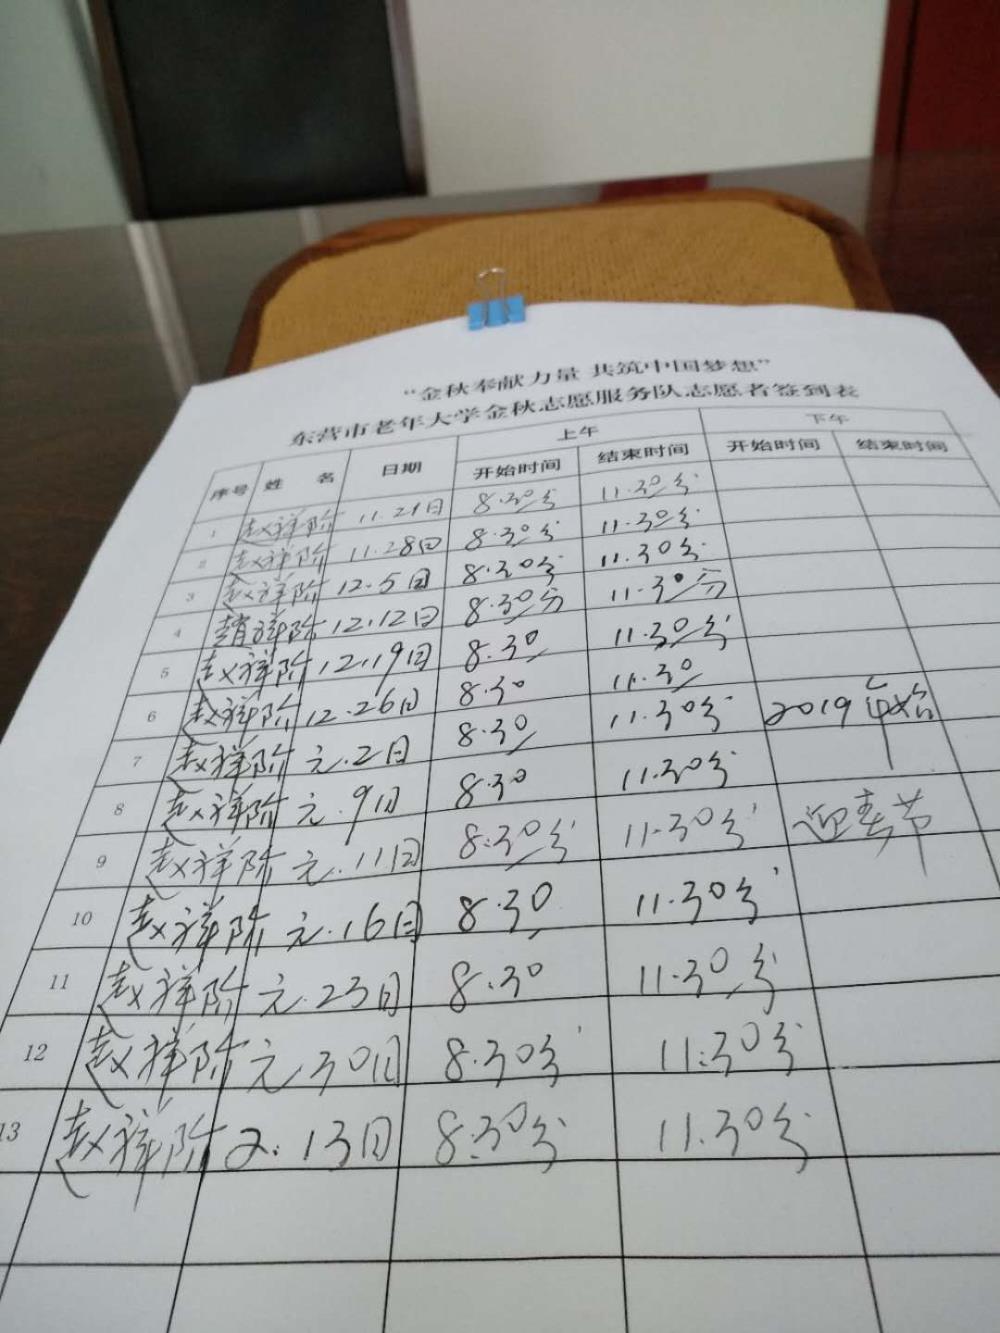 “金秋奉献力量 共筑中国梦想”
东营市老年大学金秋志愿服务队志愿者签到表
序号 姓 名 日期 上午 下午
开始时间 结束时间 开始时间 结束时间
1 赵祥阶 11.21日 8.30分 11.30分
2 赵祥阶 11.28日 8.30分 11.30分
3 赵祥阶 12.5日 8.30分 11.30分
4 趙祥阶 12.12日 8.30分 11.30分
5 赵祥阶 12.19日 8.30 11.30分
6 赵祥阶 12.26日 8.30 11.30
7 赵祥阶 元.2日 8.30 11.30分 2019年始
8 赵祥阶 元.9日 8.30 11.30分
9 赵祥阶 元.11日 8.30分 11.30分 迎春节
10 赵祥阶 元.16日 8.30 11.30分
11 赵祥阶 元.23日 8.30 11.30分
12 赵祥阶 元.30日 8.30分 11.30分
13 赵祥阶 2.13日 8.30分 11.30分